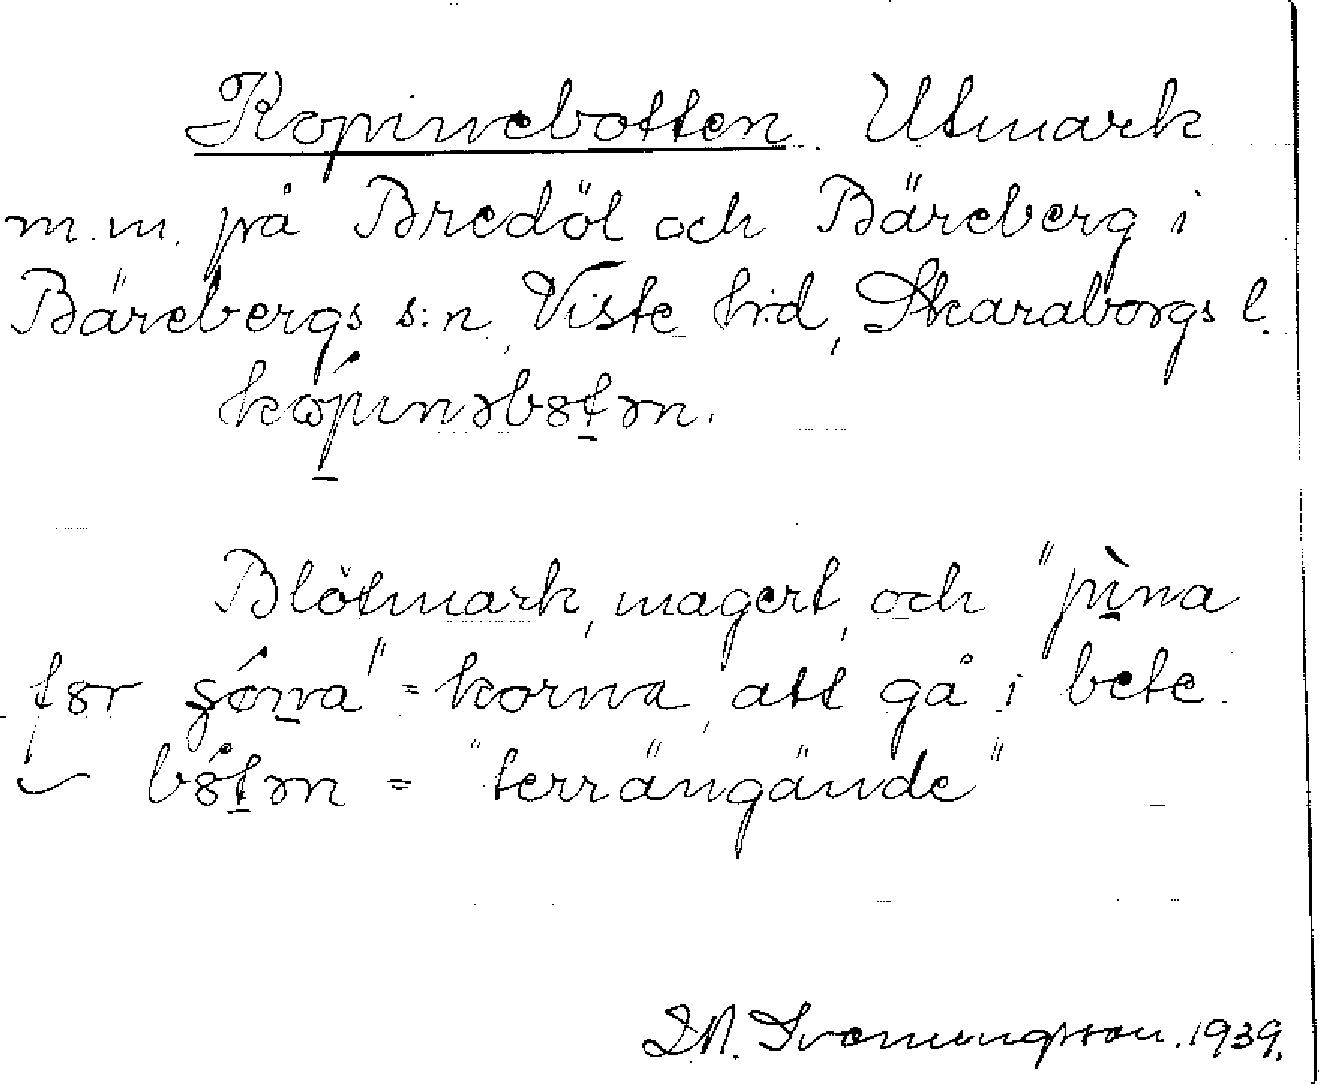 Kopinebotten. Utmark
m.m. på Bredöl och Bäreberg i
Bärebergs s:n, Viste hrd, Skaraborgs l.
Blötmark, magert, och "pìna
för = korna, att gå i bete.
= "terrängände"
Svenungsson. 1939.